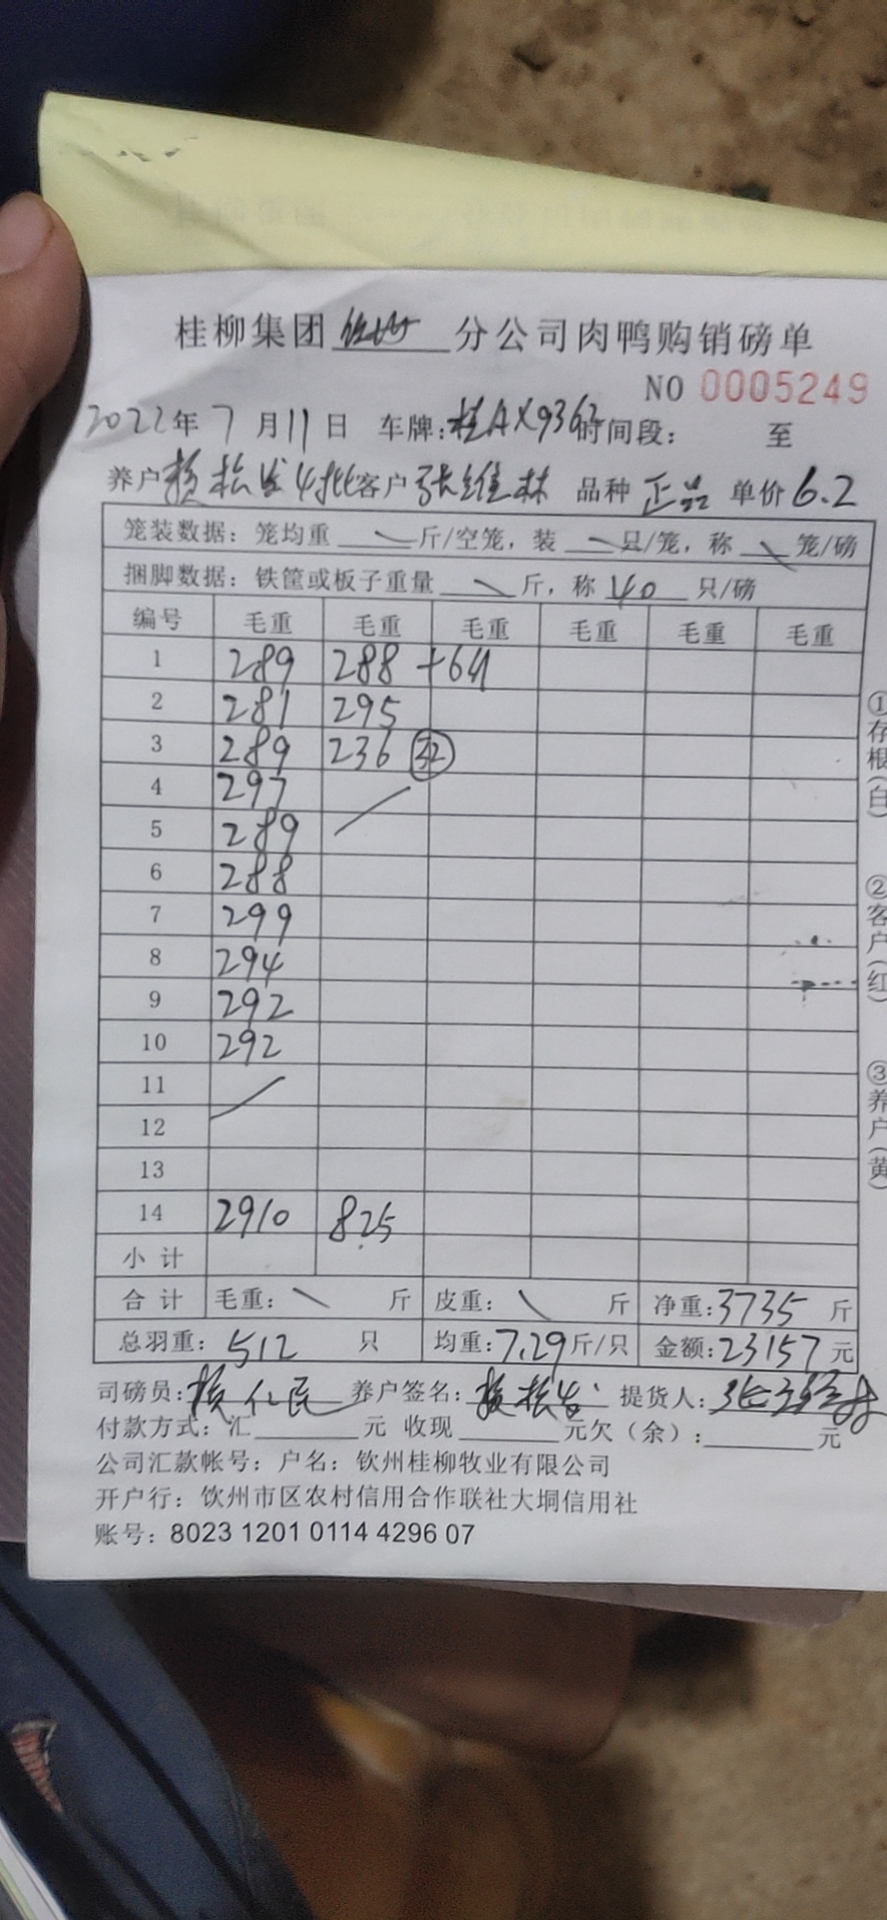 桂柳集团 分公司肉鸭购销磅单
NO 0005249
2022年 7 月 11 日 车牌:桂AX9362 时间段: 至
养户 松发4批 客户 张维林 品种 正品 单价 6.2
笼装数据: 笼均重 \ 斤/空笼, 装 \ 只/笼, 称 \ 笼/磅
捆脚数据: 铁筐或板子重量 \ 斤, 称 40 只/磅
编号 毛重 毛重 毛重 毛重 毛重 毛重
1 289 288 +641
2 281 295
3 289 236 32
4 297
5 289
6 288
7 299
8 294
9 292
10 292
11
12
13
14 2910 825
小 计
合 计 毛重: \ 斤 皮重: \ 斤 净重:3735 斤
总羽重: 512 只 均重:7.29斤/只 金额:23157 元
司磅员: 仁民 养户签名: 松发 提货人:
付款方式: 汇 元 收现 元欠(余): 元
公司汇款帐号: 户名: 钦州桂柳牧业有限公司
开户行: 钦州市区农村信用合作联社大垌信用社
账号: 8023 1201 0114 4296 07
①存根(白)
②客户(红)
③养户(黄)